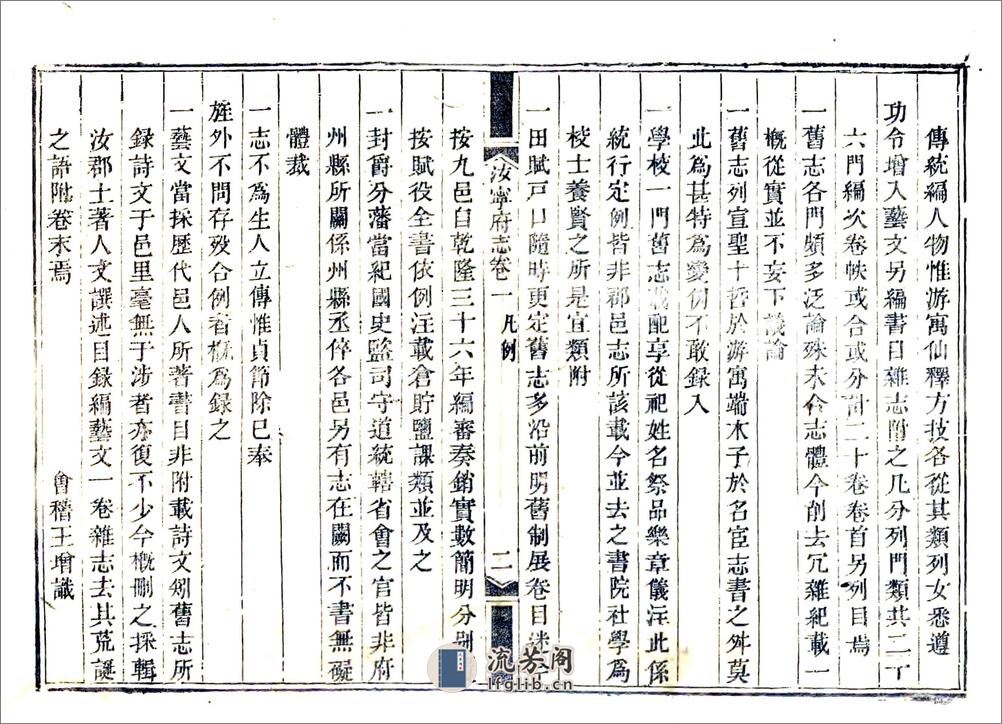 傳統編人物惟游寓仙釋方技各從其類列女悉遵
功令增入藝文另編書目雜志附之凡分列門類共二十
六門編次卷帙或合或分計二十卷卷首另列目焉
一舊志各門頗多泛論殊未合志體今削去冗雜紀載一
概從實並不妄下議論
一舊志列宣聖十哲於游寓端木子於名宦志書之舛莫
此為甚特為變例不敢録入
一學校一門舊志載配享從祀姓名祭品樂章儀注此係
統行定例皆非郡邑志所該載今並去之書院社學為
校士養賢之所是宜類附
一田賦戸口隨時更定舊志多沿前明舊制展卷目迷
汝寧府志卷一 凡例 二
按九邑自乾隆三十六年編審奏銷實數簡明分別
按賦役全書依例注載倉貯鹽課類並及之
一封爵分藩當紀國史監司守道統轄省會之官皆非府
州縣所關係州縣丞倅各邑另有志在闕而不書無礙
體裁
一志不為生人立傳惟貞節除已奉
旌外不問存歿合例者概為録之
一藝文當採歷代邑人所著書目非附載詩文矧舊志所
録詩文于邑里毫無干涉者亦復不少今概刪之採輯
汝郡士著人文譔述目録編藝文一卷雜志去其荒誕
之語附卷末焉 會稽王增識
流芳阁
lfglib.cn